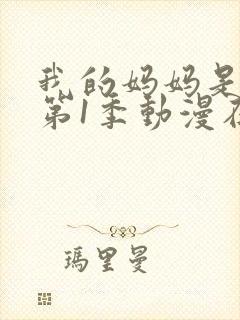 我的妈妈是
第1季動漫在
瑪里曼